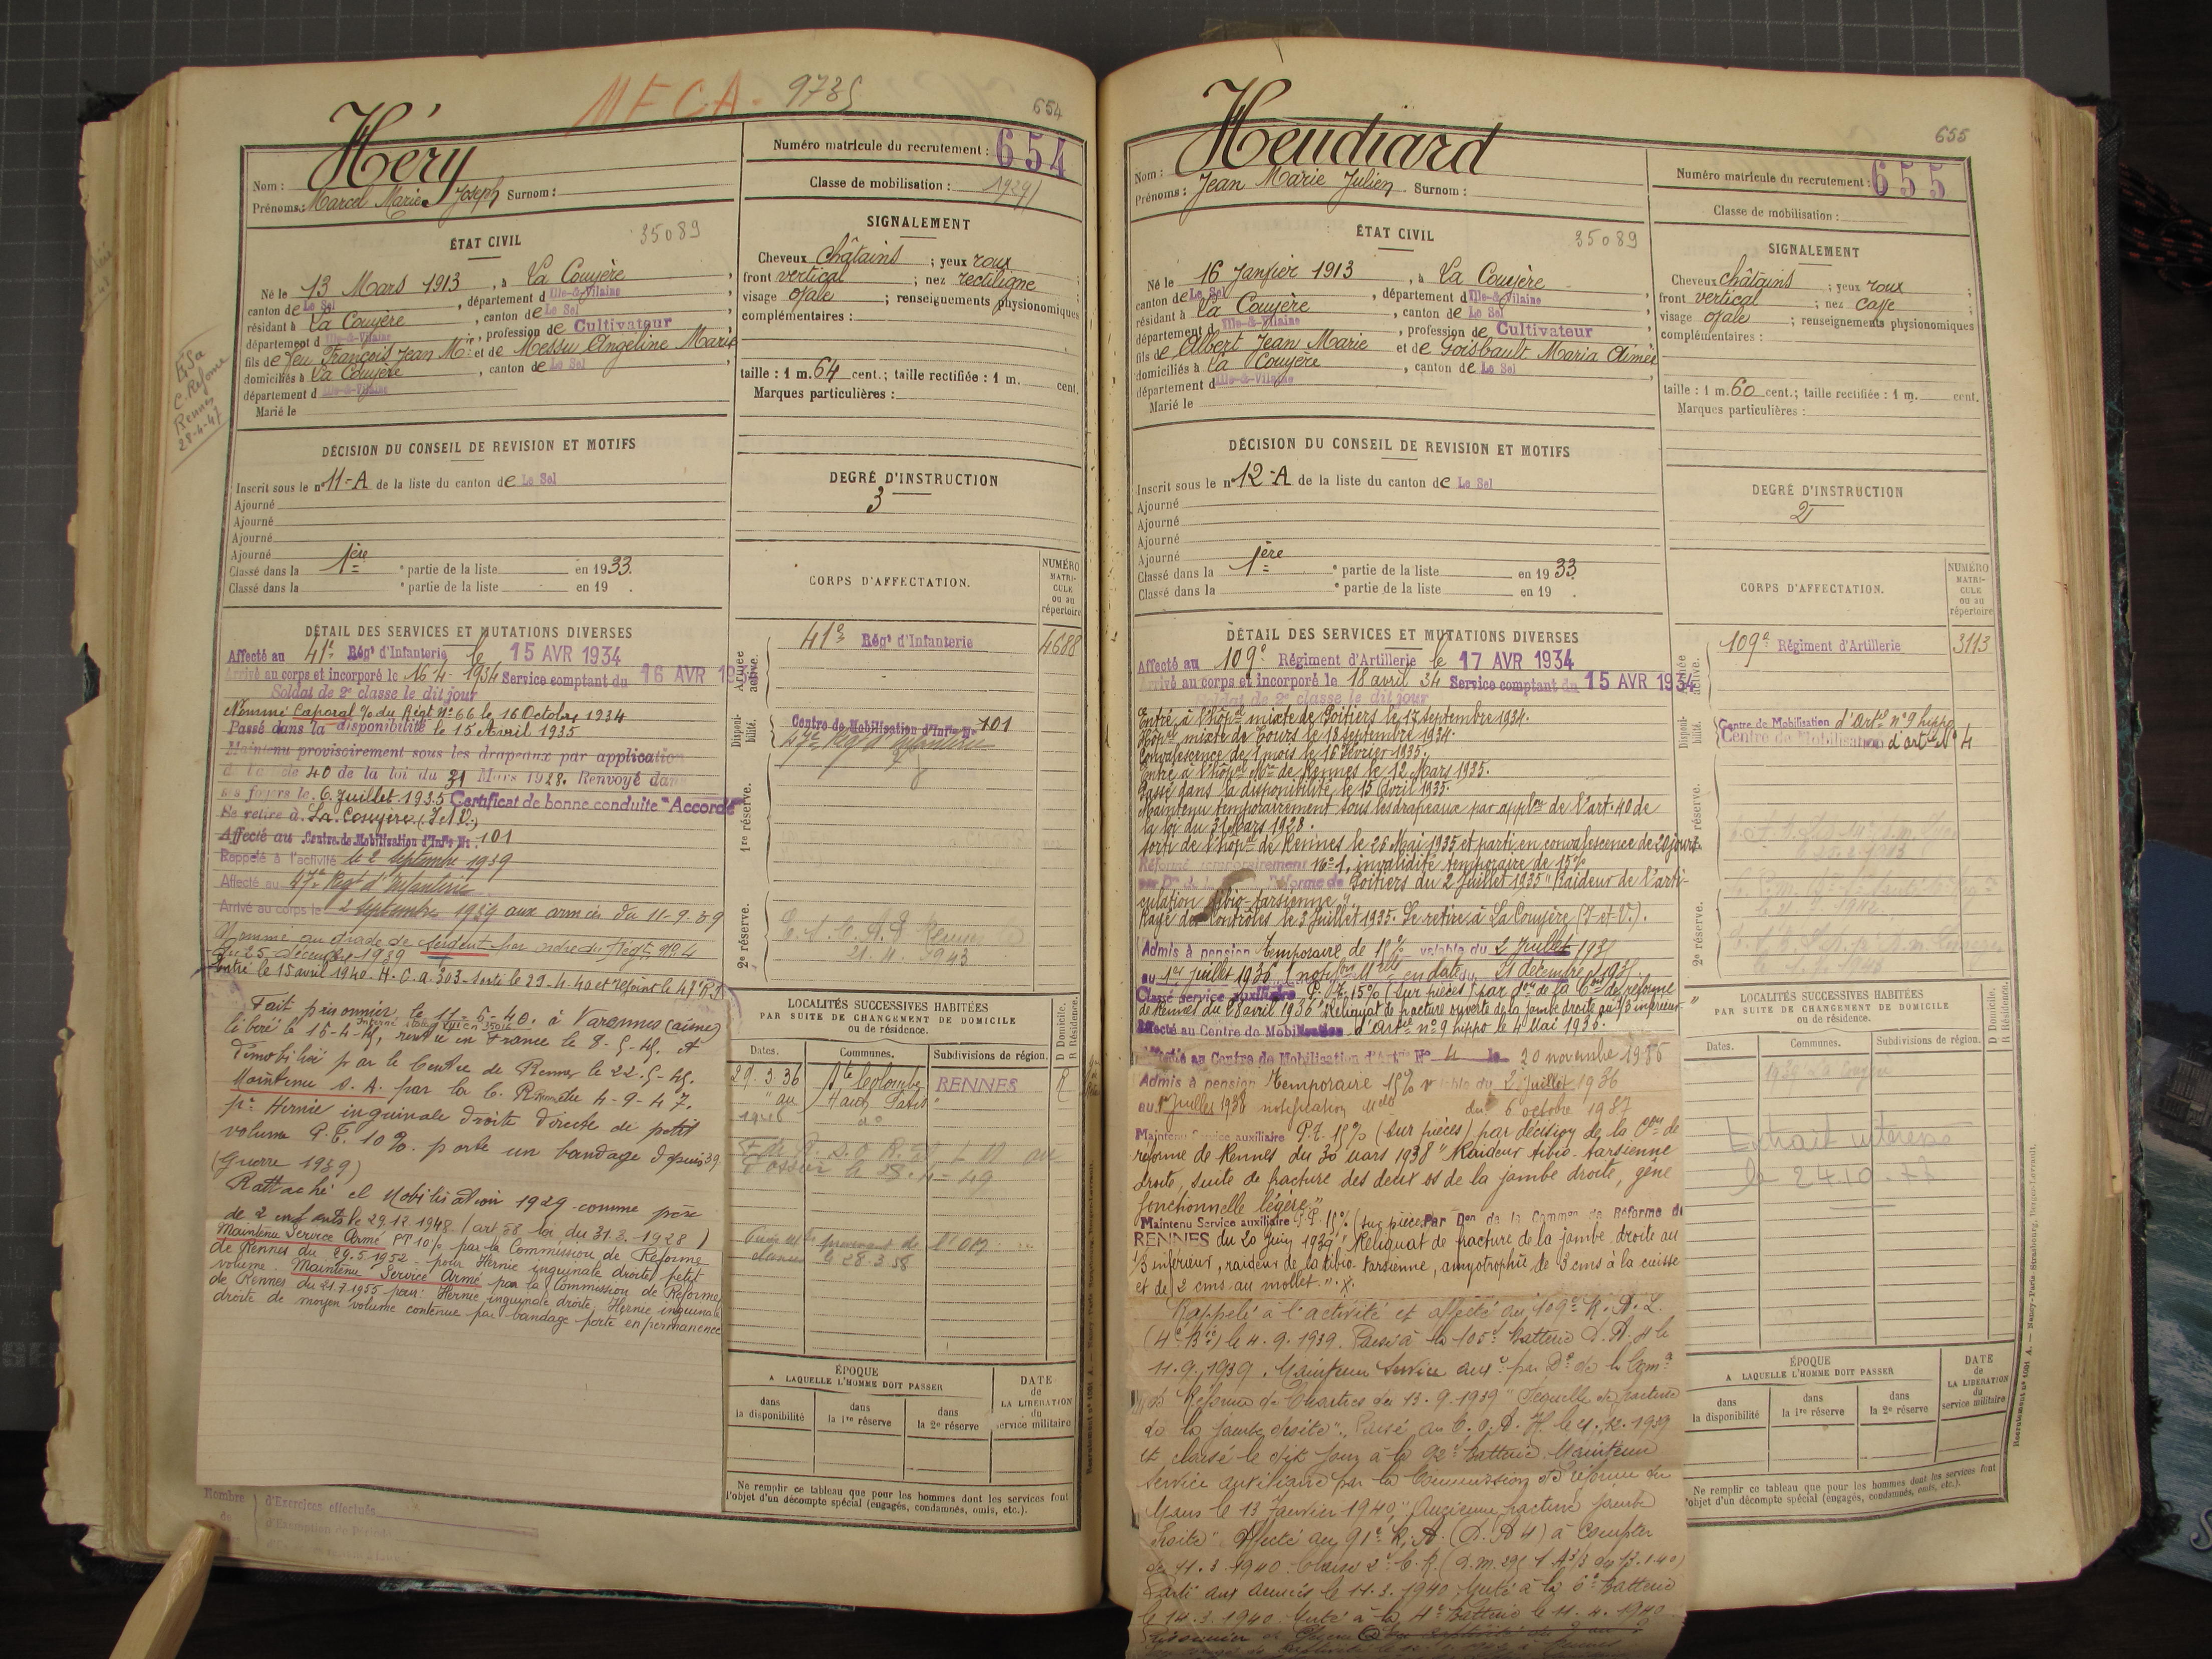 MFCA - 9735
654
Héry
Nom :
Prénoms : Marcel Marie Joseph Surnom :
Numéro matricule du recrutement : 654
Classe de mobilisation : 1929
ÉTAT CIVIL
35089
Né le 13 Mars 1913, à La Couyère,
canton de Le Sel, département d Ille-&-Vilaine,
résidant à La Couyère, canton de Le Sel,
département d Ille-&-Vilaine, profession de Cultivateur,
fils de feu François Jean Mie et de Messu Angeline Marie
domiciliés à La Couyère, canton de Le Sel,
département d Ille-&-Vilaine
Marié le
SIGNALEMENT
Cheveux châtains ; yeux roux
front vertical ; nez rectiligne ;
visage ovale ; renseignements physionomiques
complémentaires :
taille : 1 m. 64 cent. ; taille rectifiée : 1 m. cent.
Marques particulières :
C. Réforme
Rennes
28-4-47
DÉCISION DU CONSEIL DE REVISION ET MOTIFS
Inscrit sous le n° 11-A de la liste du canton de Le Sel
Ajourné
Ajourné
Ajourné
Ajourné
Classé dans la 1ère e partie de la liste en 1933.
Classé dans la e partie de la liste en 19 .
DEGRÉ D'INSTRUCTION
3
CORPS D'AFFECTATION.
NUMÉRO MATRI-CULE ou au répertoire
Armée active.
41e Régt d'Infanterie 4688
Disponi-bilité.
Centre de Mobilisation d'Infie N° 101
47e Régt d'Infanterie
1re réserve.
2e réserve.
21. 11. 1943
DÉTAIL DES SERVICES ET MUTATIONS DIVERSES
Affecté au 41e Régt d'Infanterie le 15 AVR 1934
Arrivé au corps et incorporé le 16-4-1934 Service comptant du 16 AVR 1934
Soldat de 2e classe le dit jour
Nommé Caporal % du Régt N° 66 le 16 Octobre 1934
Passé dans la disponibilité le 15 Avril 1935
Maintenu provisoirement sous les drapeaux par application
de l'article 40 de la loi du 31 Mars 1928. Renvoyé dans
ses foyers le 6 Juillet 1935 Certificat de bonne conduite "Accordé"
Se retire à La Couyère (I et V.)
Affecté au Centre de Mobilisation d'Infie N° 101
Rappelé à l'activité le 2 septembre 1939
Affecté au 47e Régt d'Infanterie
Arrivé au corps le 2 septembre 1939 aux armées du 11-9-39
Nommé au grade de sergent par ordre du Régt N° 4
du 25 décembre 1939
Entré le 15 avril 1940 H.C.a. 303 - sorti le 29.4.40 et rejoint le 47e R.I.
Fait prisonnier le 11-6-40. à Varennes (aisne)
Interné Stalag
libéré le 15-4-45, rentré en France le 8-5-45. et
démobilisé par le Centre de Rennes le 22-5-45.
Maintenu S.A. par la C. R. Rennes du 4-9-47.
pr Hernie inguinale droite directe de petit
volume P.T. 10%. porte un bandage depuis 39
(Guerre 1939)
Rattaché cl Mobilisation 1929 comme père
de 2 enfants le 29.12.1948 (art 58 loi du 31.3.1928)
Maintenu Service Armé PT 10% par la Commission de Réforme
de Rennes du 29.5.1952 - pour Hernie inguinale droite petit
volume. Maintenu Service Armé par la Commission de Réforme
de Rennes du 21.7.1955 pour : Hernie inguinale droite. Hernie inguinale
droite de moyen volume contenue par bandage porté en permanence
LOCALITÉS SUCCESSIVES HABITÉES
PAR SUITE DE CHANGEMENT DE DOMICILE
ou de résidence.
D Domicile. R Résidence.
Dates. Communes. Subdivisions de région.
29.3.36 Ste Colombe RENNES R
le 28.3.58
ÉPOQUE
A LAQUELLE L'HOMME DOIT PASSER
dans la disponibilité
dans la 1re réserve
dans la 2e réserve
DATE de LA LIBÉRATION du service militaire
Ne remplir ce tableau que pour les hommes dont les services font
l'objet d'un décompte spécial (engagés, condamnés, omis, etc.).
Nombre de
d'Exercices effectués
655
Heudiard
Nom :
Prénoms : Jean Marie Julien Surnom :
Numéro matricule du recrutement : 655
Classe de mobilisation :
ÉTAT CIVIL
35089
Né le 16 Janvier 1913, à La Couyère,
canton de Le Sel, département d Ille-&-Vilaine,
résidant à La Couyère, canton de Le Sel,
département d Ille-&-Vilaine, profession de Cultivateur,
fils de Albert Jean Marie et de Goisbault Maria Aimée,
domiciliés à La Couyère, canton de Le Sel,
département d Ille-&-Vilaine
Marié le
SIGNALEMENT
Cheveux châtains ; yeux roux ;
front vertical ; nez cave ;
visage ovale ; renseignements physionomiques
complémentaires :
taille : 1 m. 60 cent. ; taille rectifiée : 1 m. cent.
Marques particulières :
DÉCISION DU CONSEIL DE REVISION ET MOTIFS
Inscrit sous le n° 12-A de la liste du canton de Le Sel
Ajourné
Ajourné
Ajourné
Ajourné
Classé dans la 1ère e partie de la liste en 1933
Classé dans la e partie de la liste en 19 .
DEGRÉ D'INSTRUCTION
2
CORPS D'AFFECTATION.
NUMÉRO MATRI-CULE ou au répertoire
Armée active.
109e Régiment d'Artillerie 3113
Disponi-bilité.
Centre de Mobilisation d'Artie n° 9 hippo
Centre de Mobilisation d'artie N° 4
1re réserve.
2e réserve.
DÉTAIL DES SERVICES ET MUTATIONS DIVERSES
Affecté au 109e Régiment d'Artillerie le 17 AVR 1934
Arrivé au corps et incorporé le 18 avril 34 Service comptant du 15 AVR 1934
Soldat de 2e classe le dit jour
Entré à l'hôpal mixte de Poitiers le 17 septembre 1934.
Hôpal mixte de Tours le 18 septembre 1934.
Convalescence de 1 mois le 16 Février 1935.
Entré à l'hôpal Mre de Rennes le 12 Mars 1935.
Passé dans la disponibilité le 15 Avril 1935.
Maintenu temporairement sous les drapeaux par applon de l'art. 40 de
la loi du 31 Mars 1928.
Sorti de l'hôpal de Rennes le 26 Mai 1935 et parti en convalescence de 20 jours.
Réformé temporairement N° 1, invalidité temporaire de 15%
Réforme de Poitiers du 2 Juillet 1935 "Raideur de l'arti-
culation tibio-tarsienne".
Rayé des contrôles le 3 Juillet 1935. Se retire à La Couyère (I-et-V.).
Admis à pension temporaire de 15% valable du 2 Juillet 1935
au 1er juillet 1936 notifon Melle en date du 21 décembre 1935.
Classé service auxiliaire P.T. 15% (sur pièces) par don de la Con de réforme
de Rennes du 28 avril 1936 "Reliquat de fracture ouverte de la jambe droite au 1/3 inférieur"
Affecté au Centre de Mobilisation d'Artie n° 9 hippo le 4 Mai 1936.
Affecté au Centre de Mobilisation d'Artie N° 4 le 20 novembre 1936
Admis à pension temporaire 15% valable du 2 juillet 1936
au 1er Juillet 1938 notification Mdo du 6 octobre 1937
Maintenu Service auxiliaire P.T. 15% (sur pièces) par décision de la Con de
réforme de Rennes du 30 mars 1938 "Raideur tibio-tarsienne
droite, suite de fracture des deux os de la jambe droite, gêne
fonctionnelle légère."
Maintenu Service auxiliaire P.P. 15% (sur pièces) Par Don de la Common de Réforme de
RENNES du 20 juin 1939 "Reliquat de fracture de la jambe droite au
1/3 inférieur, raideur de la tibio-tarsienne, amyotrophie de 3 cms à la cuisse
et de 2 cms au mollet."
Rappelé à l'activité et affecté au 109e R.A.L.
(4e Bie) le 4.9.1939. Passé à la 105e Batterie D.A. 4 le
11.9.1939. Maintenu service auxre par Don de la Comon
de Réforme de Chartres du 13.9.1939 "Séquelle de fracture
de la jambe droite". Passé au C.O.A. 4.12.1939
et classé le dit jour à la 92e Batterie. Maintenu
service auxiliaire par la Commission de réforme du
Mans le 13 Janvier 1940, "Ancienne fracture jambe
droite". Affecté au 91e R.A. (D.A 4) à compter
du 11.3.1940.
Parti aux armées le 11.3.1940. Muté à la 6e Batterie
le 14.3.1940. Muté à la 4e Batterie le 11.4.1940
LOCALITÉS SUCCESSIVES HABITÉES
PAR SUITE DE CHANGEMENT DE DOMICILE
ou de résidence.
D Domicile. R Résidence.
Dates. Communes. Subdivisions de région.
1939 La Couyère
Extrait intéressé
le 24.10.77
ÉPOQUE
A LAQUELLE L'HOMME DOIT PASSER
dans la disponibilité
dans la 1re réserve
dans la 2e réserve
DATE de LA LIBÉRATION du service militaire
Ne remplir ce tableau que pour les hommes dont les services font
l'objet d'un décompte spécial (engagés, condamnés, omis, etc.).
Recrutement n° 1081 A. — Nancy-Paris-Strasbourg, Berger-Levrault.